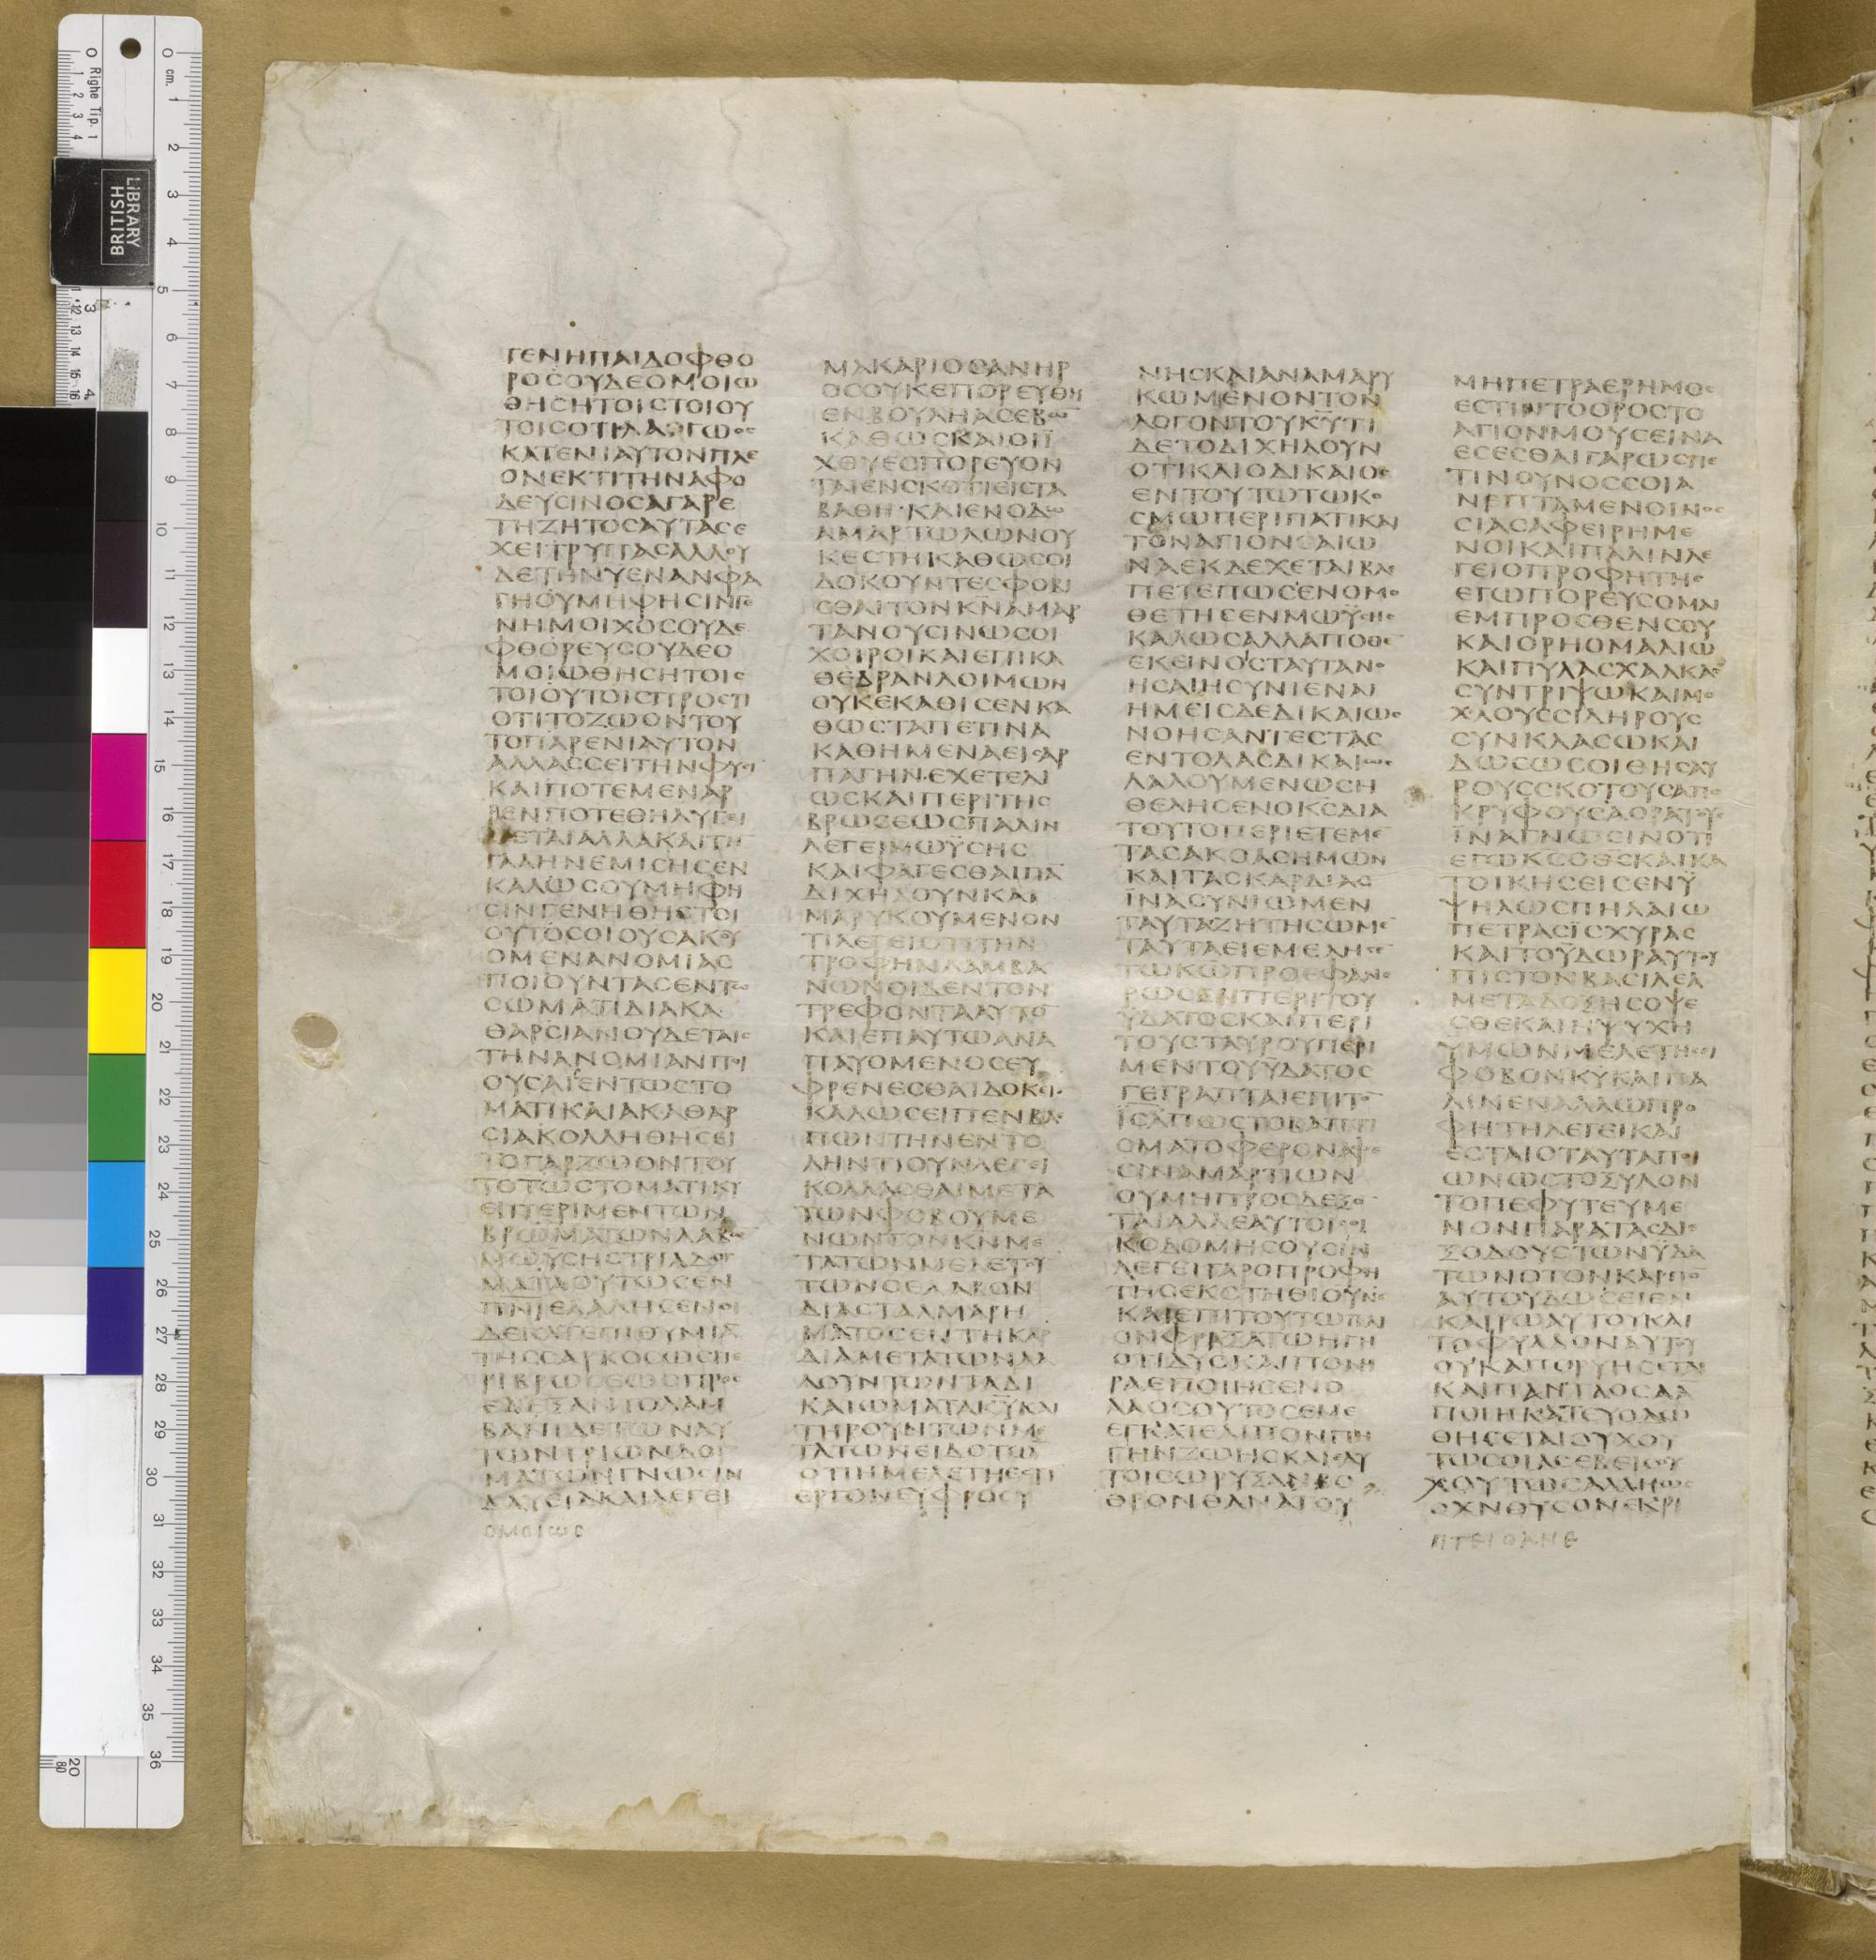 ΓΕΝΗΠΑΙΔΟΦΘΟ
ΡΟϹΟΥΔΕΟΜΟΙΩ
ΘΗϹΗΤΟΙϹΤΟΙΟΥ
ΤΟΙϹΟΤΙΛΑΓΩΟϹ
ΚΑΤΕΝΙΑΥΤΟΝΠΛΕ
ΟΝΕΚΤΙΤΗΝΑΦΟ
ΔΕΥϹΙΝΟϹΑΓΑΡΕ
ΤΗΖΗΤΟϹΑΥΤΑϹΕ
ΧΕΙΤΡΥΠΑϹΑΛΛΟΥ
ΔΕΤΗΝΥΕΝΑΝΦΑ
ΓΗΟΥΜΗΦΗϹΙΝΓΕ
ΝΗΜΟΙΧΟϹΟΥΔΕ
ΦΘΟΡΕΥϹΟΥΔΕΟ
ΜΟΙΩΘΗϹΗΤΟΙϹ
ΤΟΙΟΥΤΟΙϹΠΡΟϹΤΙ
ΟΤΙΤΟΖΩΟΝΤΟΥ
ΤΟΠΑΡΕΝΙΑΥΤΟΝ
ΑΛΛΑϹϹΕΙΤΗΝΦΥϹΙ
ΚΑΙΠΟΤΕΜΕΝΑΡ
ΡΕΝΠΟΤΕΘΗΛΥΓΕΙ
ΝΕΤΑΙΑΛΛΑΚΑΙΤΗ
ΓΑΛΗΝΕΜΙϹΗϹΕΝ
ΚΑΛΩϹΟΥΜΗΦΗ
ϹΙΝΓΕΝΗΘΗϹΤΟΙ
ΟΥΤΟϹΟΙΟΥϹΑΚΟΥ
ΟΜΕΝΑΝΟΜΙΑϹ
ΠΟΙΟΥΝΤΑϹΕΝΤΩ
ϹΩΜΑΤΙΔΙΑΚΑ
ΘΑΡϹΙΑΝΟΥΔΕΤΑΙϹ
ΤΗΝΑΝΟΜΙΑΝΠΟΙ
ΟΥϹΑΙϹΕΝΤΩϹΤΟ
ΜΑΤΙΚΑΙΑΚΑΘΑΡ
ϹΙΑΚΟΛΛΗΘΗϹΕΙ
ΤΟΓΑΡΖΩΟΝΤΟΥ
ΤΟΤΩϹΤΟΜΑΤΙΚΥ
ΕΙΠΕΡΙΜΕΝΤΩΝ
ΒΡΩΜΑΤΩΝΛΑΒΩ
ΜΩΥϹΗϹΤΡΙΑΔΟΓ
ΜΑΤΑΟΥΤΩϹΕΝ
ΠΝΙΕΛΑΛΗϹΕΝΟΙ
ΔΕΚΑΤΕΠΙΘΥΜΙΑ
ΤΗϹϹΑΡΚΟϹΩϹΠΕ
ΡΙΒΡΩϹΕΩϹΠΡΟϹ
ΕΔΕΞΑΝΤΟΛΑΜ
ΒΑΝΙΔΕΤΩΝΑΥ
ΤΩΝΤΡΙΩΝΔΟΓ
ΜΑΤΩΝΓΝΩϹΙΝ
ΔΑΥΕΙΔΚΑΙΛΕΓΕΙ
ΟΜΟΙΩϹ
ΜΑΚΑΡΙΟϹΑΝΗΡ
ΟϹΟΥΚΕΠΟΡΕΥΘΗ
ΕΝΒΟΥΛΗΑϹΕΒΩ
ΚΑΘΩϹΚΑΙΟΙΪ
ΧΘΥΕϹΠΟΡΕΥΟΝ
ΤΑΙΕΝϹΚΟΤΙΕΙϹΤΑ
ΒΑΘΗ·ΚΑΙΕΝΟΔΩ
ΑΜΑΡΤΩΛΩΝΟΥ
ΚΕϹΤΗΚΑΘΩϹΟΙ
ΔΟΚΟΥΝΤΕϹΦΟΒΙ
ϹΘΑΙΤΟΝΚΝΑΜΑΡ
ΤΑΝΟΥϹΙΝΩϹΟΙ
ΧΟΙΡΟΙΚΑΙΕΠΙΚΑ
ΘΕΔΡΑΝΛΟΙΜΩΝ
ΟΥΚΕΚΑΘΙϹΕΝΚΑ
ΘΩϹΤΑΠΕΤΙΝΑ
ΚΑΘΗΜΕΝΑΕΙϹΑΡ
ΠΑΓΗΝ·ΕΧΕΤΕΛΙ
ΩϹΚΑΙΠΕΡΙΤΗϹ
ΒΡΩϹΕΩϹΠΑΛΙΝ
ΛΕΓΕΙΜΩΥϹΗϹ
ΚΑΙΦΑΓΕϹΘΑΙΠΑ
ΔΙΧΗΛΟΥΝΚΑΙ
ΜΑΡΥΚΟΥΜΕΝΟΝ
ΤΙΛΕΓΕΙΟΤΙΤΗΝ
ΤΡΟΦΗΝΛΑΜΒΑ
ΝΩΝΟΙΔΕΝΤΟΝ
ΤΡΕΦΟΝΤΑΑΥΤΟ
ΚΑΙΕΠΑΥΤΩΑΝΑ
ΠΑΥΟΜΕΝΟϹΕΥ
ΦΡΕΝΕϹΘΑΙΔΟΚΕΙ·
ΚΑΛΩϹΕΙΠΕΝΒΛΕ
ΠΩΝΤΗΝΕΝΤΟ
ΛΗΝΤΙΟΥΝΛΕΓΕΙ
ΚΟΛΛΑϹΘΑΙΜΕΤΑ
ΤΩΝΦΟΒΟΥΜΕ
ΝΩΝΤΟΝΚΝΜΕ
ΤΑΤΩΝΜΕΛΕΤΟΥ
ΤΩΝΟΕΛΑΒΟΝ
ΔΙΑϹΤΑΛΜΑΡΗ
ΜΑΤΟϹΕΝΤΗΚΑΡ
ΔΙΑΜΕΤΑΤΩΝΛΑ
ΛΟΥΝΤΩΝΤΑΔΙ
ΚΑΙΩΜΑΤΑΚΥΚΑΙ
ΤΗΡΟΥΝΤΩΝΜΕ
ΤΑΤΩΝΕΙΔΟΤΩ
ΟΤΙΗΜΕΛΕΤΗΕϹΤΙ
ΕΡΓΟΝΕΥΦΡΟϹΥ
ΝΗϹΚΑΙΑΝΑΜΑΡΥ
ΚΩΜΕΝΟΝΤΟΝ
ΛΟΓΟΝΤΟΥΚΥΤΙ
ΔΕΤΟΔΙΧΗΛΟΥΝ
ΟΤΙΚΑΙΟΔΙΚΑΙΟϹ
ΕΝΤΟΥΤΩΤΩΚΟ
ϹΜΩΠΕΡΙΠΑΤΙΚΑΙ
ΤΟΝΑΓΙΟΝΕΑΙΩ
ΝΑΕΚΔΕΧΕΤΑΙΒΛΕ
ΠΕΤΕΠΩϹΕΝΟΜΟ
ΘΕΤΗϹΕΝΜΩΫϹΗϹ
ΚΑΛΩϹΑΛΛΑΠΟΘΕ
ΕΚΕΙΝΟΙϹΤΑΥΤΑΝΟ
ΗϹΑΙΗϹΥΝΙΕΝΑΙ
ΗΜΕΙϹΔΕΔΙΚΑΙΩϹ
ΝΟΗϹΑΝΤΕϹΤΑϹ
ΕΝΤΟΛΑϹΔΙΚΑΙΩϹ
ΛΑΛΟΥΜΕΝΩϹΗ
ΘΕΛΗϹΕΝΟΚϹΔΙΑ
ΤΟΥΤΟΠΕΡΙΕΤΕΜΕ
ΤΑϹΑΚΟΑϹΗΜΩΝ
ΚΑΙΤΑϹΚΑΡΔΙΑϹ
ΪΝΑϹΥΝΙΩΜΕΝ
ΤΑΥΤΑΖΗΤΗϹΩΜΕ
ΤΑΥΤΑΕΙΕΜΕΛΗϹΕ
ΤΩΚΩΠΡΟΕΦΑΝΕ
ΡΩϹΕΝΠΕΡΙΤΟΥ
ΥΔΑΤΟϹΚΑΙΠΕΡΙ
ΤΟΥϹΤΑΥΡΟΥΠΕΡΙ
ΜΕΝΤΟΥΫΔΑΤΟϹ
ΓΕΓΡΑΠΤΑΙΕΠΙΤΟ
ΪϹΛΠΩϹΤΟΒΑΠΤΙ
ϹΜΑΤΟΦΕΡΟΝΑΦΕ
ϹΙΝΑΜΑΡΤΙΩΝ
ΟΥΜΗΠΡΟϹΔΕΞΟ
ΤΑΙΑΛΛΕΑΥΤΟΙϹΟΙ
ΚΟΔΟΜΗϹΟΥϹΙΝ
ΛΕΓΕΙΓΑΡΟΠΡΟΦΗ
ΤΗϹΕΚϹΤΗΘΙΟΥΝΕ
ΚΑΙΕΠΙΤΟΥΤΩΠΛΙ
ΟΝΦΡΙΞΑΤΩΗΓΗ
ΟΤΙΔΥΟΚΑΙΠΟΝΗ
ΡΑΕΠΟΙΗϹΕΝΟ
ΛΑΟϹΟΥΤΟϹΕΜΕ
ΕΓΚΑΤΕΛΙΠΟΝΠΗ
ΓΗΝΖΩΗϹΚΑΙΕΑΥ
ΤΟΙϹΩΡΥΞΑΝΒΟ
ΘΡΟΝΘΑΝΑΤΟΥ
ΜΗΠΕΤΡΑΕΡΗΜΟϹ
ΕϹΤΙΝΤΟΟΡΟϹΤΟ
ΑΓΙΟΝΜΟΥϹΕΙΝΑ
ΕϹΕϹΘΑΙΓΑΡΩϹΠΕ
ΤΙΝΟΥΝΟϹϹΟΙΑ
ΝΕΠΤΑΜΕΝΟΙΝΟϹ
ϹΙΑϹΑΦΕΙΡΗΜΕ
ΝΟΙΚΑΙΠΑΛΙΝΛΕ
ΓΕΙΟΠΡΟΦΗΤΗϹ
ΕΓΩΠΟΡΕΥϹΟΜΑΙ
ΕΜΠΡΟϹΘΕΝϹΟΥ
ΚΑΙΟΡΗΟΜΑΛΙΩ
ΚΑΙΠΥΛΑϹΧΑΛΚΑϹ
ϹΥΝΤΡΙΨΩΚΑΙΜΟ
ΧΛΟΥϹϹΙΔΗΡΟΥϹ
ϹΥΝΚΛΑϹΩΚΑΙ
ΔΩϹΩϹΟΙΘΗϹΑΥ
ΡΟΥϹϹΚΟΤΟΥϹΑΠΟ
ΚΡΥΦΟΥϹΑΟΡΑΤΟΥϹ
ΪΝΑΓΝΩϹΙΝΟΤΙ
ΕΓΩΚϹΟΘϹΚΑΙΚΑ
ΤΟΙΚΗϹΕΙϹΕΝΫ
ΨΗΛΩϹΠΗΛΑΙΩ
ΠΕΤΡΑϹΪϹΧΥΡΑϹ
ΚΑΙΤΟΫΔΩΡΑΥΤΟΥ
ΠΙϹΤΟΝΒΑϹΙΛΕΑ
ΜΕΤΑΔΟΞΗϹΟΨΕ
ϹΘΕΚΑΙΗΨΥΧΗ
ΥΜΩΝΜΕΛΕΤΗϹΕΙ
ΦΟΒΟΝΚΥΚΑΙΠΑ
ΛΙΝΕΝΑΛΛΩΠΡΟ
ΦΗΤΗΛΕΓΕΙΚΑΙ
ΕϹΤΑΙΟΤΑΥΤΑΠΟΙ
ΩΝΩϹΤΟΞΥΛΟΝ
ΤΟΠΕΦΥΤΕΥΜΕ
ΝΟΝΠΑΡΑΤΑϹΔΙΕ
ΞΟΔΟΥϹΤΩΝΫΔΑ
ΤΩΝΟΤΟΝΚΑΡΠΟ
ΑΥΤΟΥΔΩϹΕΙΕΝ
ΚΑΙΡΩΑΥΤΟΥΚΑΙ
ΤΟΦΥΛΛΟΝΑΥΤΟΥ
ΟΥΚΑΠΟΡΥΗϹΕΤΑΙ
ΚΑΙΠΑΝΤΑΟϹΑΑ
ΠΟΙΗΚΑΤΕΥΟΔΩ
ΘΗϹΕΤΑΙΟΥΧΟΥ
ΤΩϹΟΙΑϹΕΒΕΙϹΟΥ
ΧΟΥΤΩϹΑΛΛΗΩϹ
ΟΧΝΘΥϹΟΝΕΚΡΙ
ΠΤΕΙΟΑΝΕ
BRITISH
LIBRARY